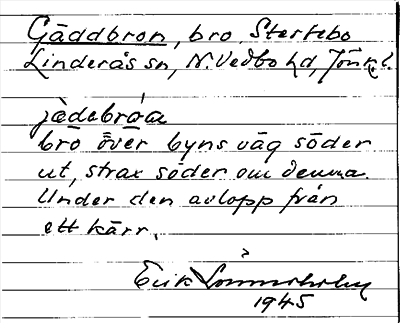 Gäddbron, bro Stertebo
Linderås sn, N. Vedbo hd, Jönk. l.
jädebróa
bro över byns väg söder
ut, strax söder om denna.
Under den avlopp från
ett kärr.
Erik
1945